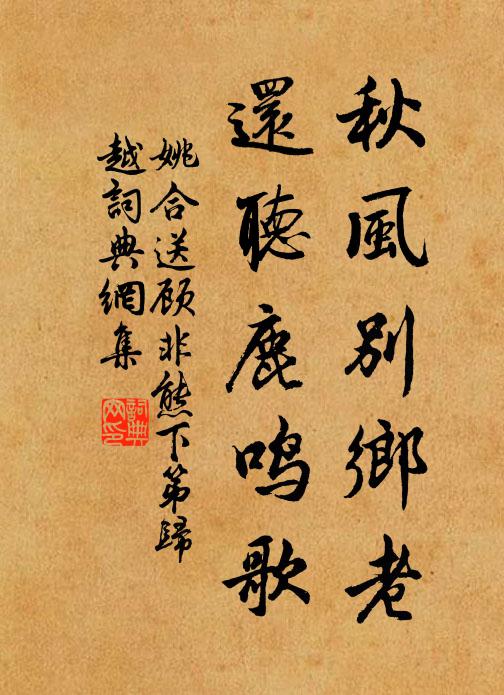 秋風別鄉老
還聽鹿鳴歌
姚合送顾非熊下第歸
越詞典網集
詞典網印